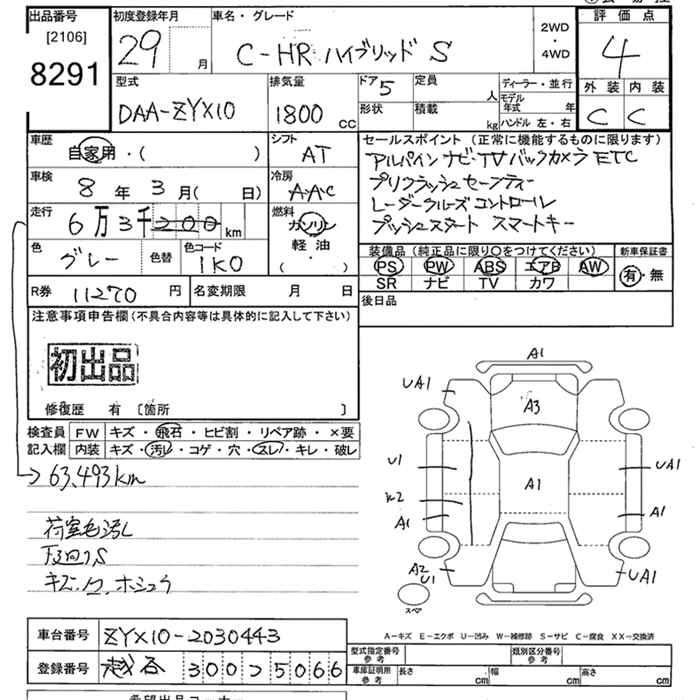 出品番号 [2106] 8291
初度登録年月 29 月
車名・グレード C-HR ハイブリッド S
2WD ・ 4WD
評価点 4
外装 C 内装 C
型式 DAA-ZYX10
排気量 1800 CC
ドア 5 形状
定員 人 積載 kg
ディーラー・並行
モデル年式 年
ハンドル 左・右
車歴 自家用・( )
シフト AT
車検 8 年 3 月( 日)
冷房 AAC
走行 6万3千200 km
燃料 ガソリン 軽油 ( )
色 グレー 色替 色コード 1K0
R券 11270 円 名変期限 月 日
セールスポイント(正常に機能するものに限ります)
アルパイン ナビ・TV バックカメラ ETC
プリクラッシュセーフティー
レーダークルーズコントロール
プッシュスタート スマートキー
装備品(純正品に限り○をつけてください) 新車保証書
PS PW ABS エアB AW 有・無
SR ナビ TV カワ
後日品
注意事項申告欄(不具合内容等は具体的に記入して下さい)
初出品
修復歴 有 [箇所 ]
検査員 FW キズ・飛石・ヒビ割・リペア跡・×要
記入欄 内装 キズ・汚レ・コゲ・穴・スレ・キレ・破レ
63,493km
荷室毛汚レ
A1
UA1
A3
U1
UA1
A1
A1
A1
A2
U1
UA1
スペア
A-キズ E-エクボ U-凹み W-補修跡 S-サビ C-腐食 XX-交換済
車台番号 ZYX10-2030443
登録番号 越谷 300 ス 5066
型式指定番号 参考 類別区分番号 参考
車庫証明用 参考 長さ cm 幅 cm 高さ cm